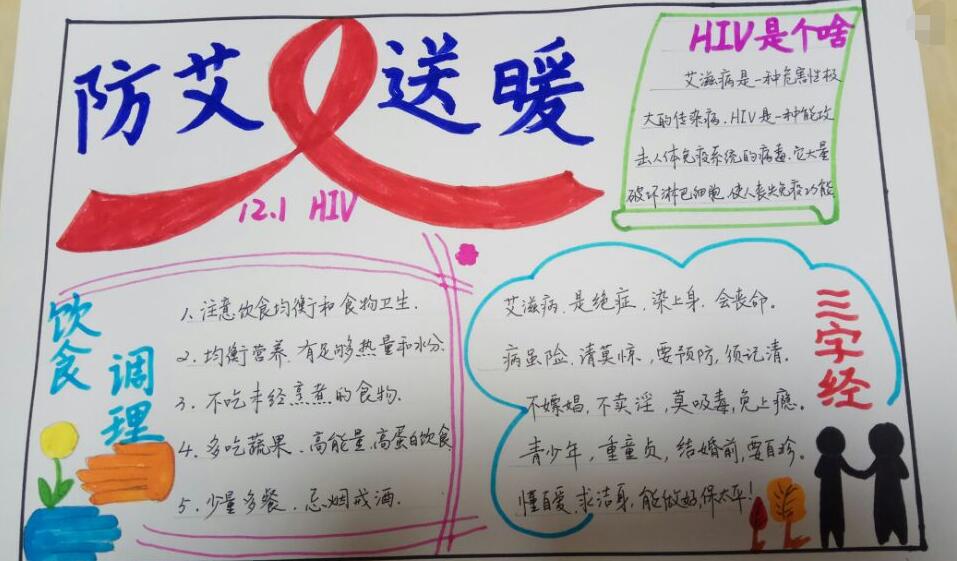 防艾送暖
12.1 HIV
HIV是个啥
艾滋病是一种危害性极
大的传染病.HIV是一种能攻
击人体免疫系统的病毒.它大量
破坏淋巴细胞,使人丧失免疫功能
饮食
调理
1.注意饮食均衡和食物卫生.
2.均衡营养.有足够热量和水分.
3.不吃未经烹煮的食物.
4.多吃蔬果.高能量.高蛋白饮食
5.少量多餐.忌烟戒酒.
三字经
艾滋病.是绝症.染上身.会丧命。
病虽险.请莫惊,要预防,须记清。
不嫖娼,不卖淫,莫吸毒,免上瘾。
青少年,重童贞,结婚前,要自珍。
懂自爱.求洁身,能做好,保太平!